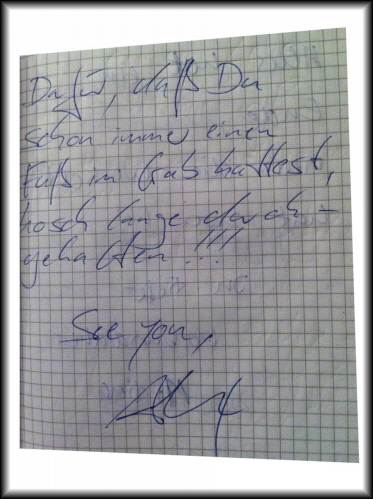 Dafür, daß Du
schon immer einen
Fuß im Grab hattest,
hosch lange durch-
gehalten !!!
See you,